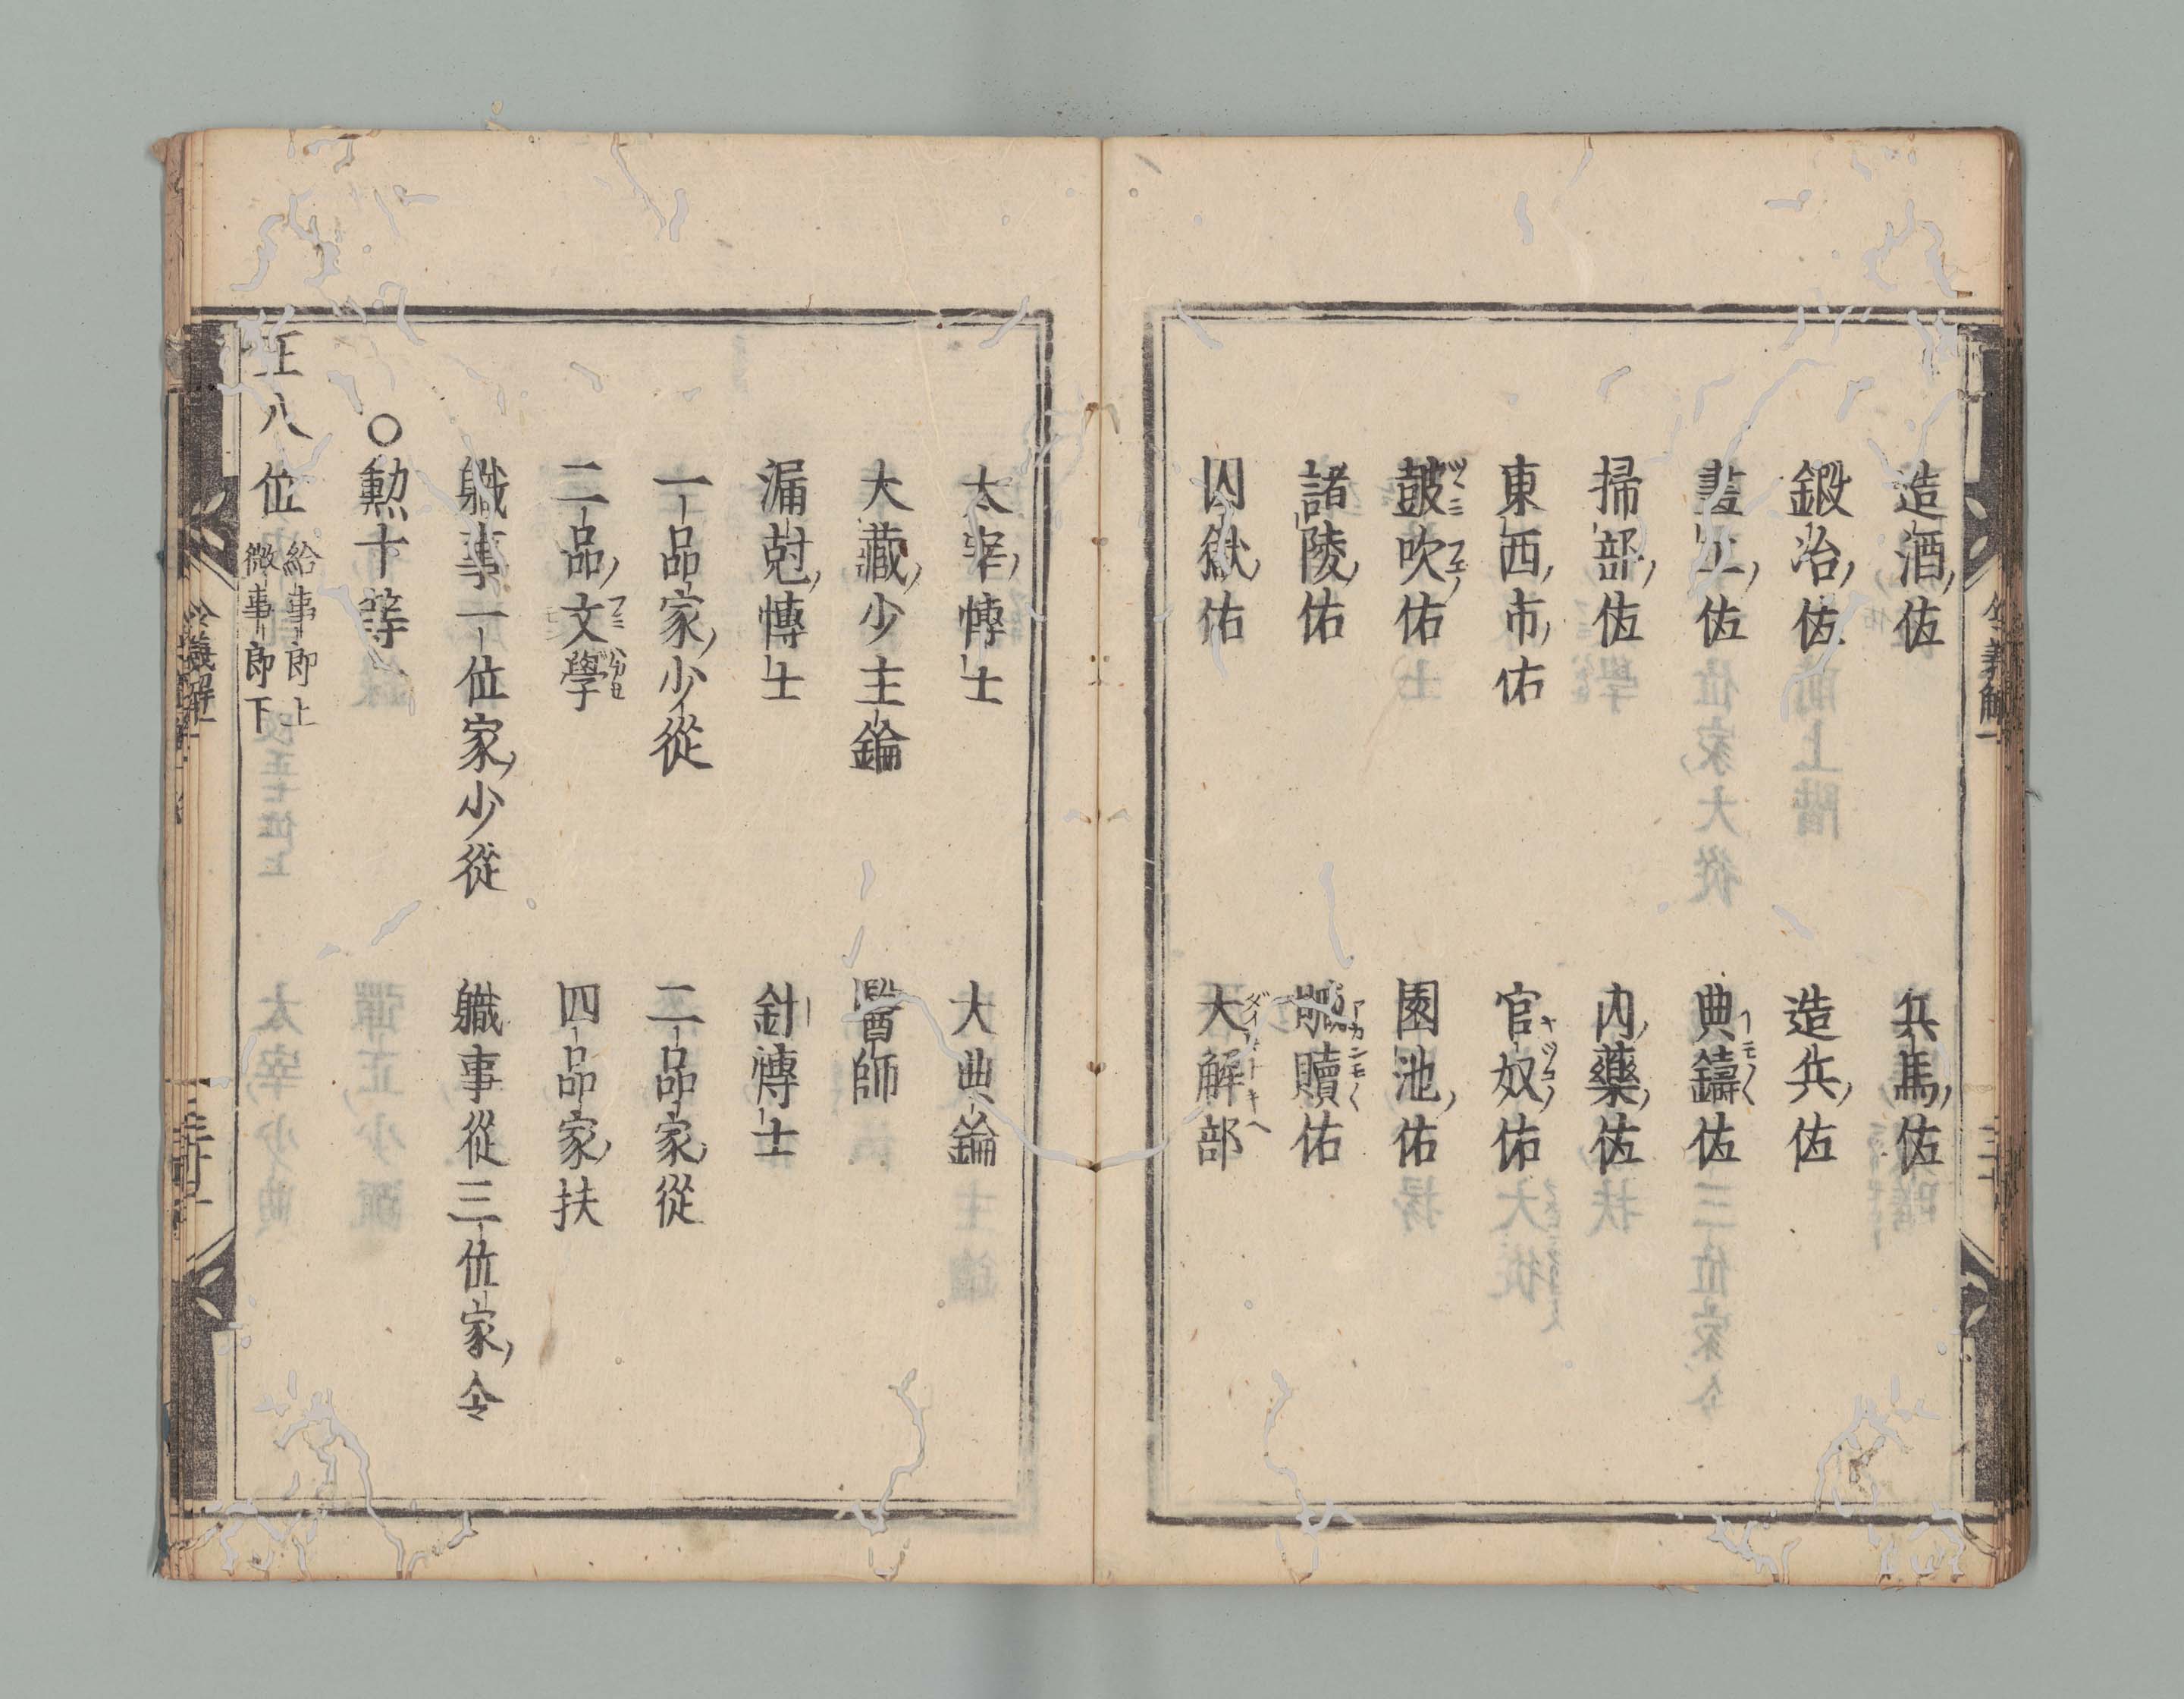 造酒佑 兵馬佑
鍛冶佑 造兵佑
畫工佑 典鑄佑
掃部佑 內藥佑
東西市佑 官奴佑
鼓吹佑 園池佑
諸陵佑 贓贖佑
囚獄佑 大解部
太宰博士 大典鑰
大藏少主鑰 醫師
漏尅博士 針博士
一品家少從 二品家從
二品文學 四品家扶
職事一位家少從 職事從三位家令
〇勲十等
正八位 給事郎上
微事郎下